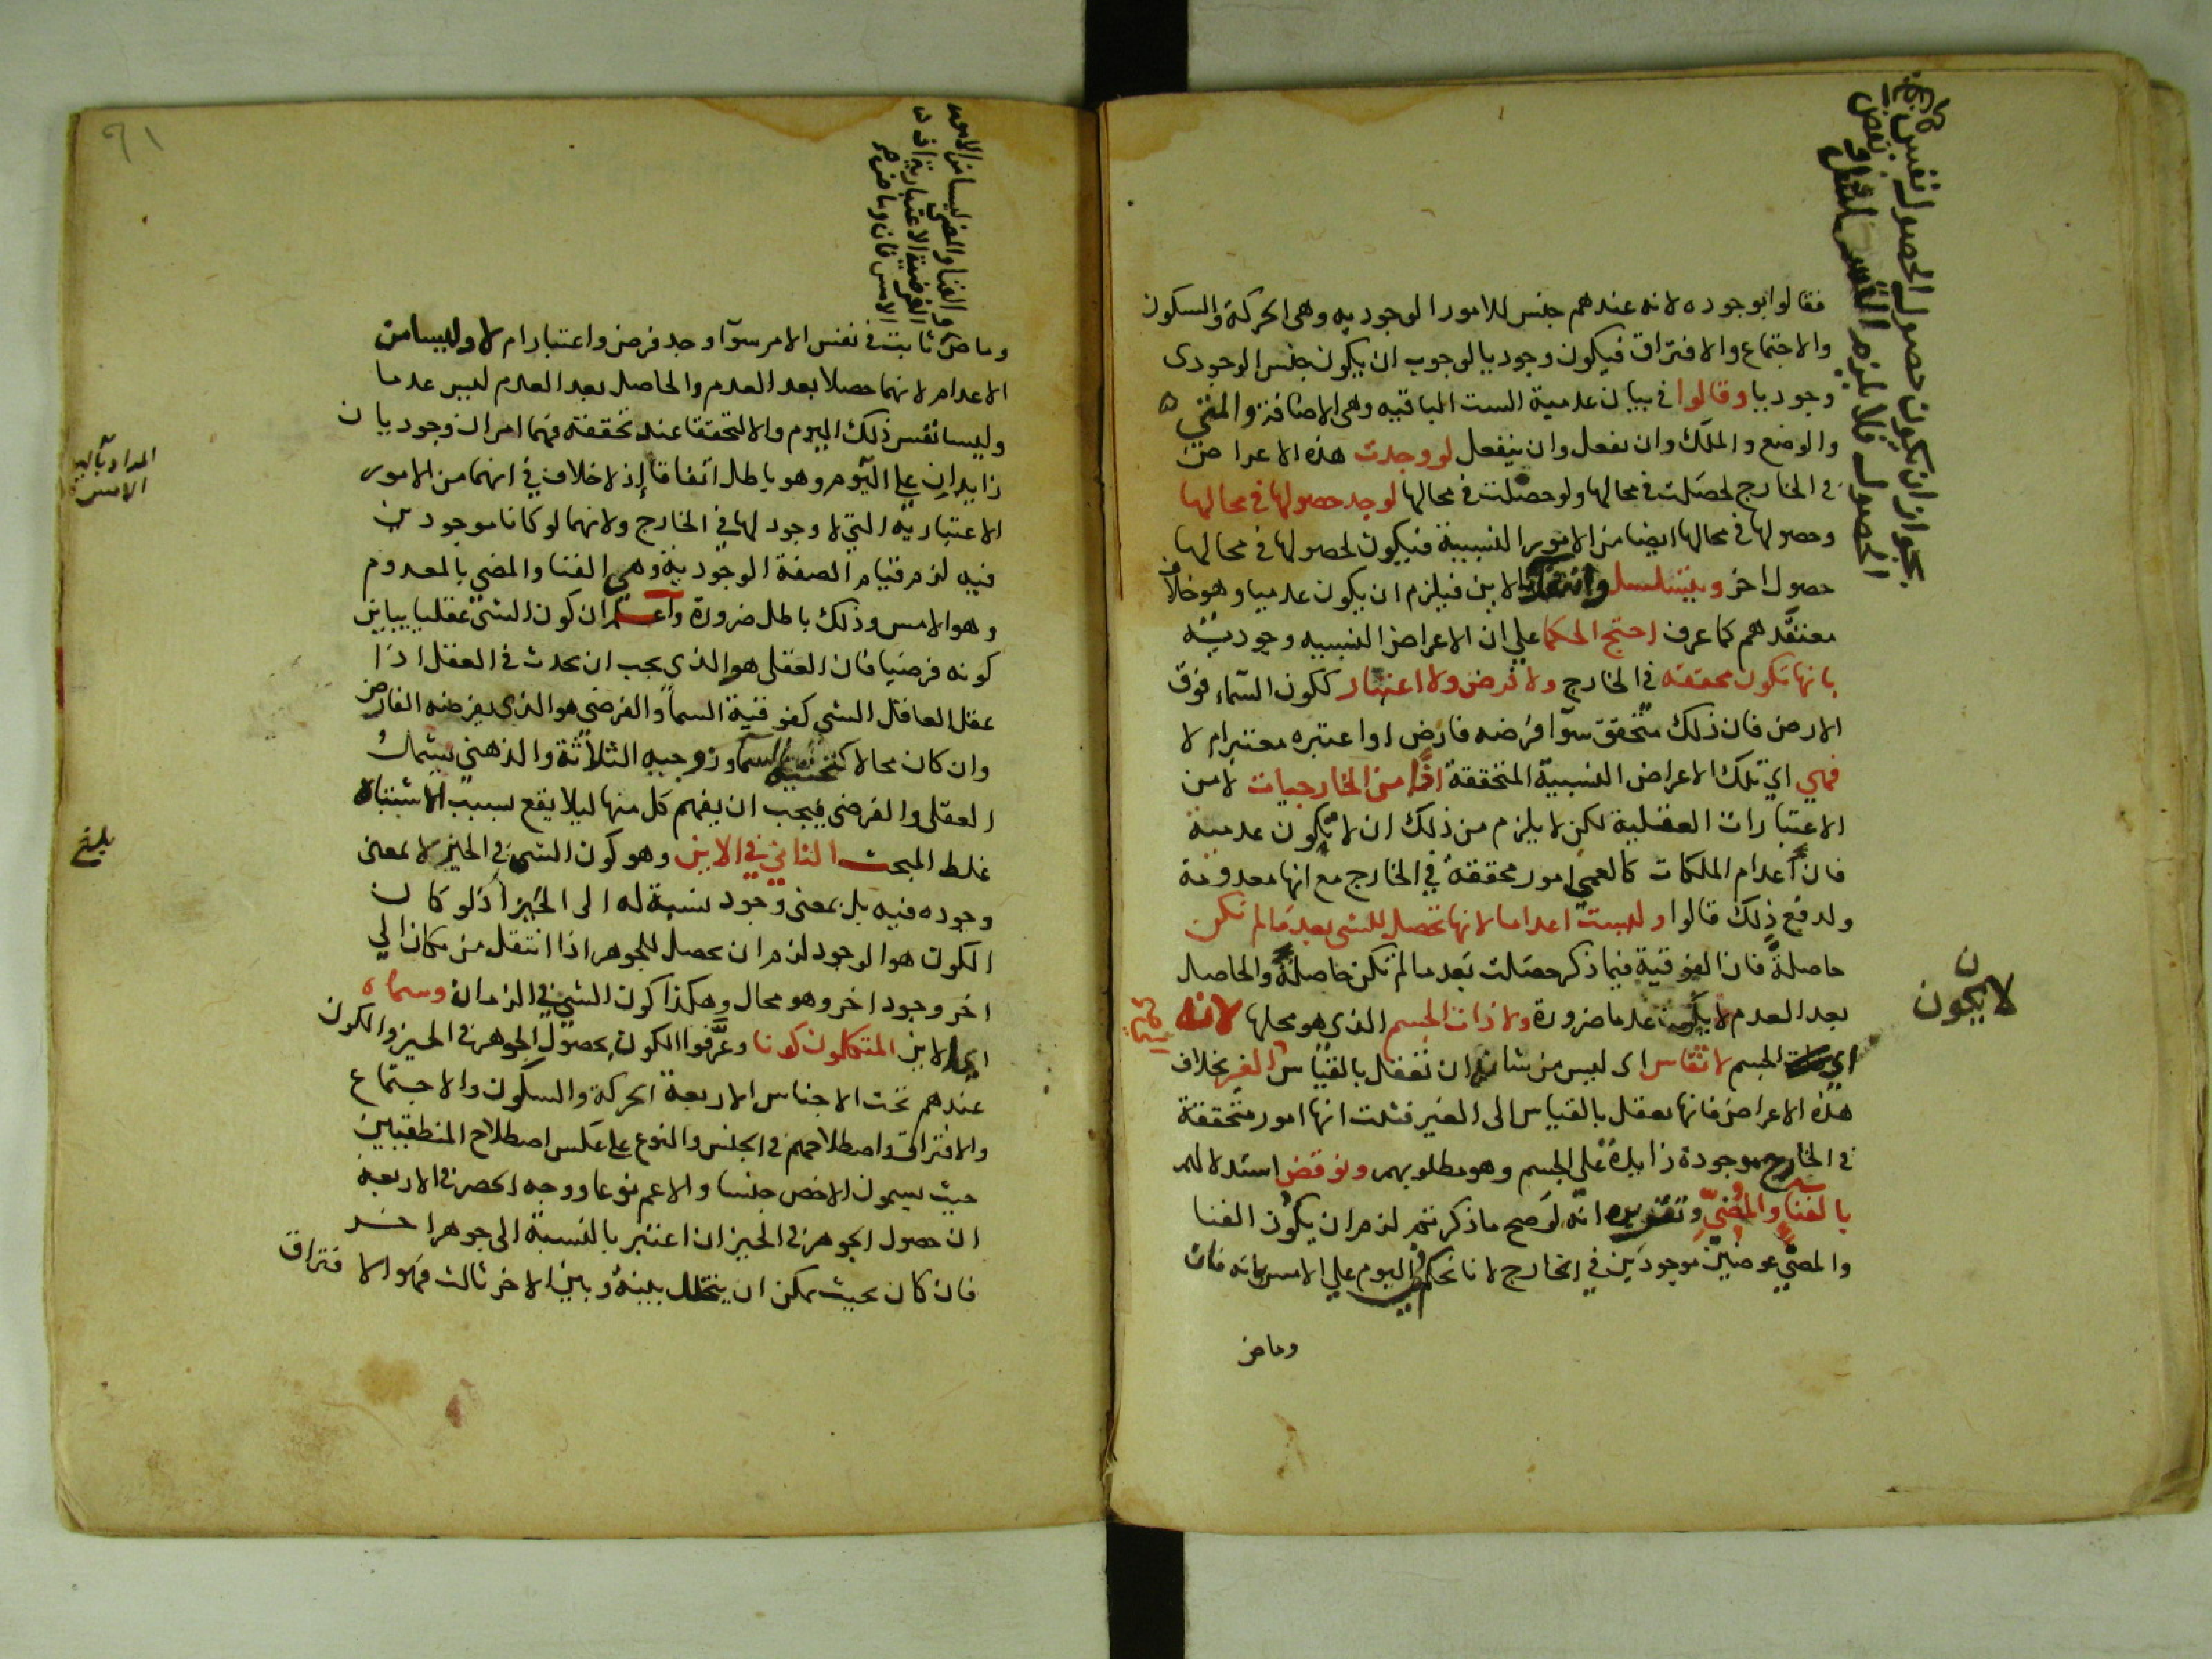 فقالوا بوجوده لانه عندهم جنس للامور الوجوديه وهى الحركة والسكون
والاجتماع والافتراق فيكون وجوديا لوجوب ان يكون جنس الوجودى
وجوديا وقالوا فى بيان عدمية الست الباقيه وهى الاضافة والمتى
والوضع والملك وان يفعل وان ينفعل لو وجدت هذه الاعراض
فى الخارج لحصلت فى محالها ولو حصلت فى محالها لوجد حصولها فى محالها
وحصولها فى محالها ايضا من الامور النسبية فيكون لحصولها فى محالها
حصول اخر ويتسلسل وانتقض بالاين فيلزم ان يكون عدميا وهو خلاف
معتقدهم كما عرف احتج الحكما على ان الاعراض النسبيه وجوديّه
بانها تكون محققه فى الخارج ولا فرض ولا اعتبار ككون السماء فوق
الارض فان ذلك متحقق سوآ فرضه فارض او اعتبره معتبر ام لا
فهى اي تلك الاعراض النسبية المتحققة اذًا من الخارجيات لا من
الاعتبارات العقلية لكن لا يلزم من ذلك ان لا تكون عدمية
فان أعدام الملكات كالعمى امور محققة في الخارج مع انها معدومة
ولدفع ذلك قالوا وليست اعداما لانها تحصل للشى بعد ما لم تكن
حاصلةً فان الفوقية فيما ذكر حصلت بعد ما لم تكن حاصلةً والحاصل
بعد العدم لا يكون عدما ضرورة ولا ذات الجسم الذي هو محلها لانه
اي ذات الجسم لا تقاس اى ليس من شانه ان تعقل بالقياس الى الغير بخلاف
هذه الاعراض فانها تعقل بالقياس الى الغير فثبت انها امور متحققة
فى الخارج موجودة زايدة على الجسم وهو مطلوبهم ونوقض استدلالهم
بالفنا والمُضىّ وتقريره انه لو صح ما ذكرتم لزم ان يكون الفنا
والمضىّ عرضين موجودين في الخارج لانا نحكم في اليوم على الامس بانه فان
وماض
يجوز ان يكون حصول الحصول نفس
الحصول فلا يلزم التسلسل
لا يكون
وماض ثابت فى نفس الامر سوآ وجد فرض واعتبار ام لا وليسا من
الاعدام لانهما حصلا بعد العدم والحاصل بعد العدم ليس عدما
وليسا نفس ذلك اليوم والا لتحققا عند تحققه فهما امران وجوديان
زايدان على اليوم وهو باطل اتفاقا إذ لا خلاف في انهما من الامور
الاعتباريه التي لا وجود لها في الخارج ولانهما لو كانا موجودين
فيه لزم قيام الصفة الوجودية وهى الفنا والمضى بالمعدوم
وهو الامس وذلك باطل ضرورة واعلم ان كون الشئ عقليا يباين
كونه فرضيا فان العقلى هو الذي يجب ان يحدث فى العقل اذا
عقل العاقل الشى كفوقية السمآ والفرضى هو الذى يفرضه الفارض
وان كان محالا كتحتية السمآ وزوجيه الثلاثة والذهنى يشمل
العقلى والفرضى فيجب ان يفهم كل منها ليلا يقع لسبب الاشتباه
غلط المبحث الثانى في الاين وهو كون الشئ فى الحيز لا بمعنى
وجوده فيه بل بمعنى وجود نسبة له الى الحيز إذ لو كان
الكون هو الوجود لزم ان يحصل للجوهر اذا انتقل من مكان الي
اخر وجود اخر وهو محال وهكذا كون الشئ في الزمان وسماه
اى الاين المتكلمون كونا وعرَّفوا الكون بحصول الجوهر فى الحيز والكون
عندهم تحت الاجناس الاربعة الحركة والسكون والاجتماع
والافتراق واصطلاحهم فى الجنس والنوع على عكس اصطلاح المنطقيين
حيث يسمون الاخص جنسا والاعم نوعا ووجه الحصر فى الاربعه
ان حصول الجوهر فى الحيز ان اعتبر بالنسبة الى جوهر اخر
فان كان بحيث يمكن ان يتخلل بينه وبين الاخر ثالث فهو الافتراق
والفنا والمضى ليسا من الامور
الفرضية الاعتبارية
الامس فان وماض
المراد باليوم
الامس
بلغ
٩١